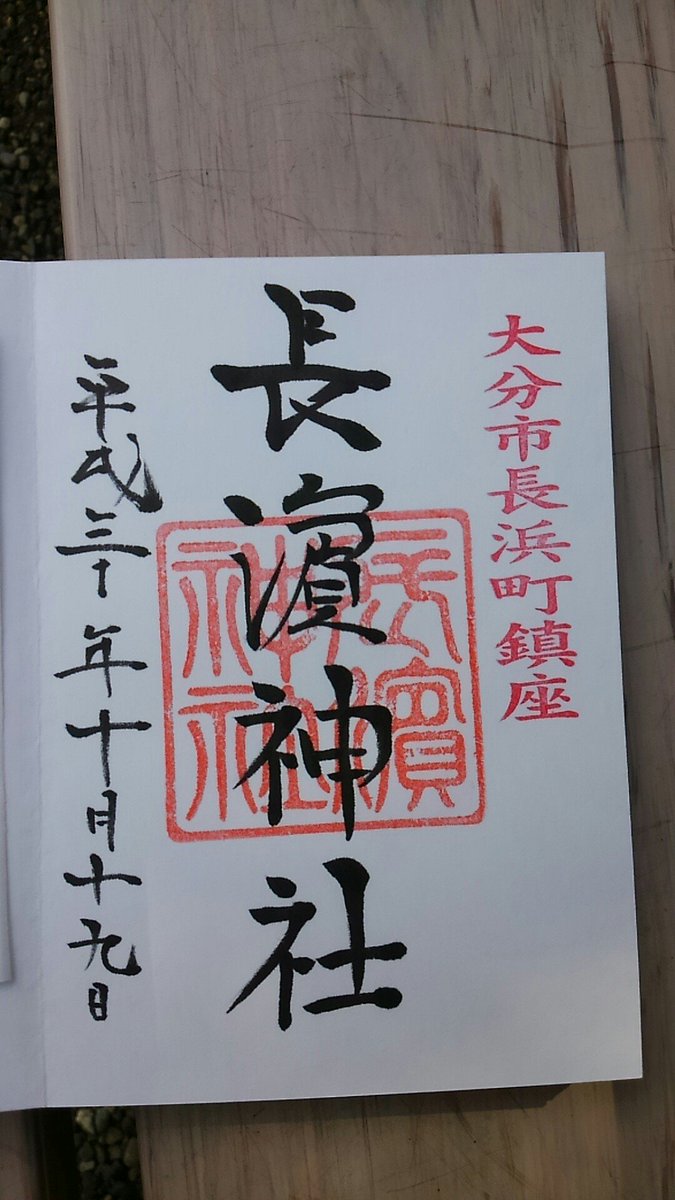 大分市長浜町鎮座
長濱神社
長濱
神社
平成三十年十月十九日